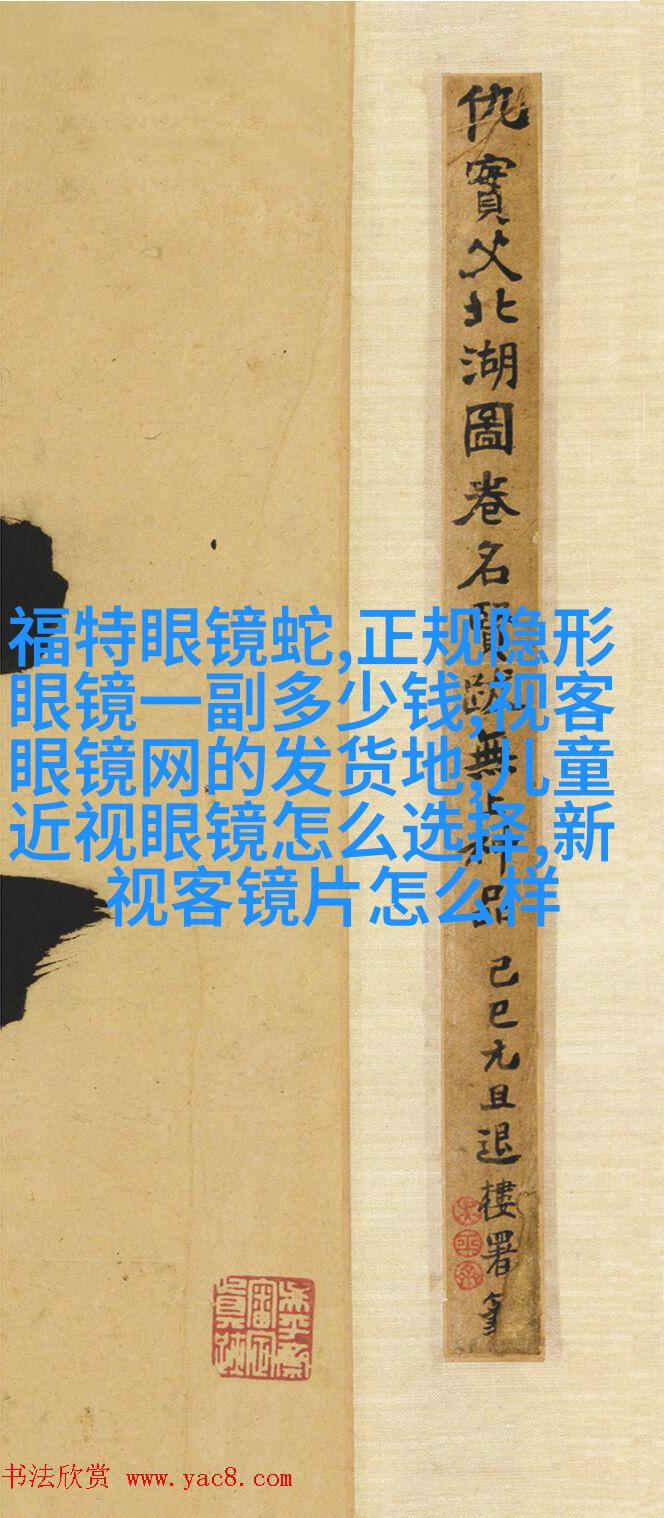 仇實父北湖圖卷名賢跋無上神品
己巳元旦退樓署耑
福特眼镜蛇,正规隐形
眼镜一副多少钱,视客
眼镜网的发货地,儿童
近视眼镜怎么选择,新
视客镜片怎么样
书法欣赏 www.yac8.com